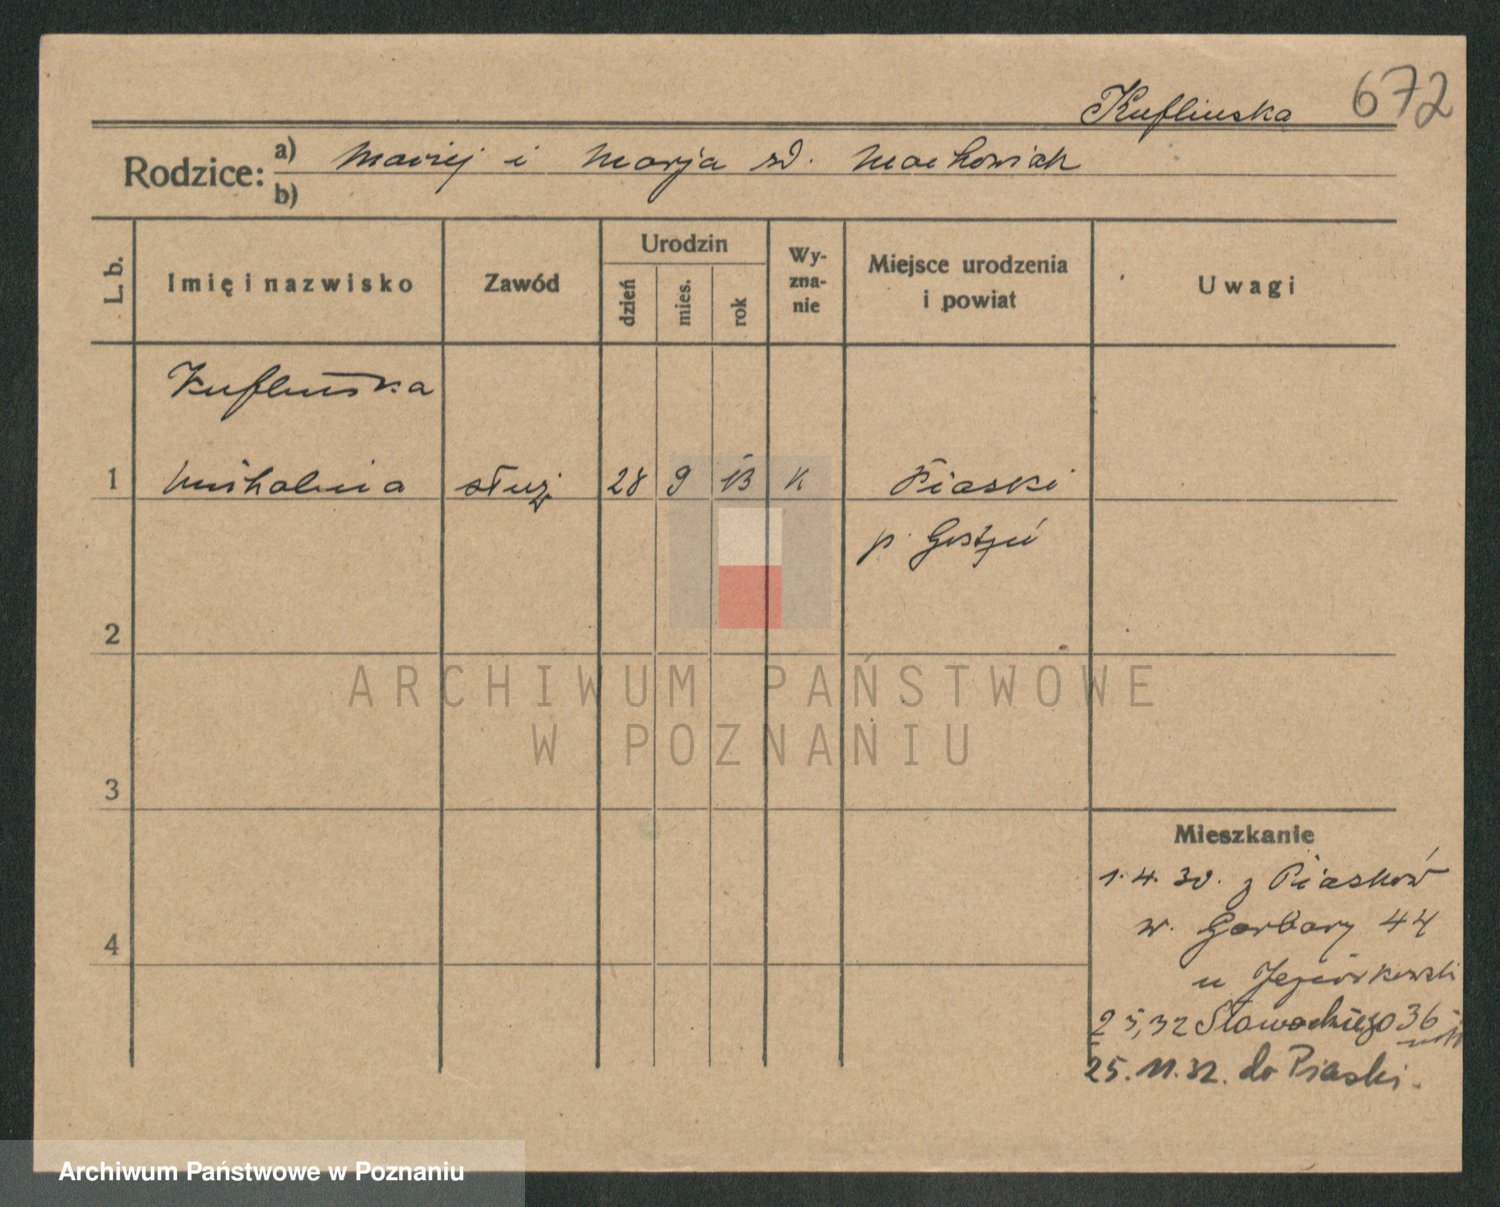 672
Kuflinska
Rodzice: a) Maciej i Marja zd. Machowiak
b)
L. b. Imię i nazwisko Zawód Urodzin dzień mies. rok Wyznanie Miejsce urodzenia i powiat Uwagi
Kuflińska
1 Michalina służ 28 9 13 K Piaski
p. Gostyń
2
ARCHIWUM PAŃSTWOWE
W POZNANIU
3
Mieszkanie
1. 4. 30. z Piasków
w. Garbary 44
4
u Jeziorkowski
2 5, 32 Słowackiego 36
25. 11. 32. do Piaski.
Archiwum Państwowe w Poznaniu